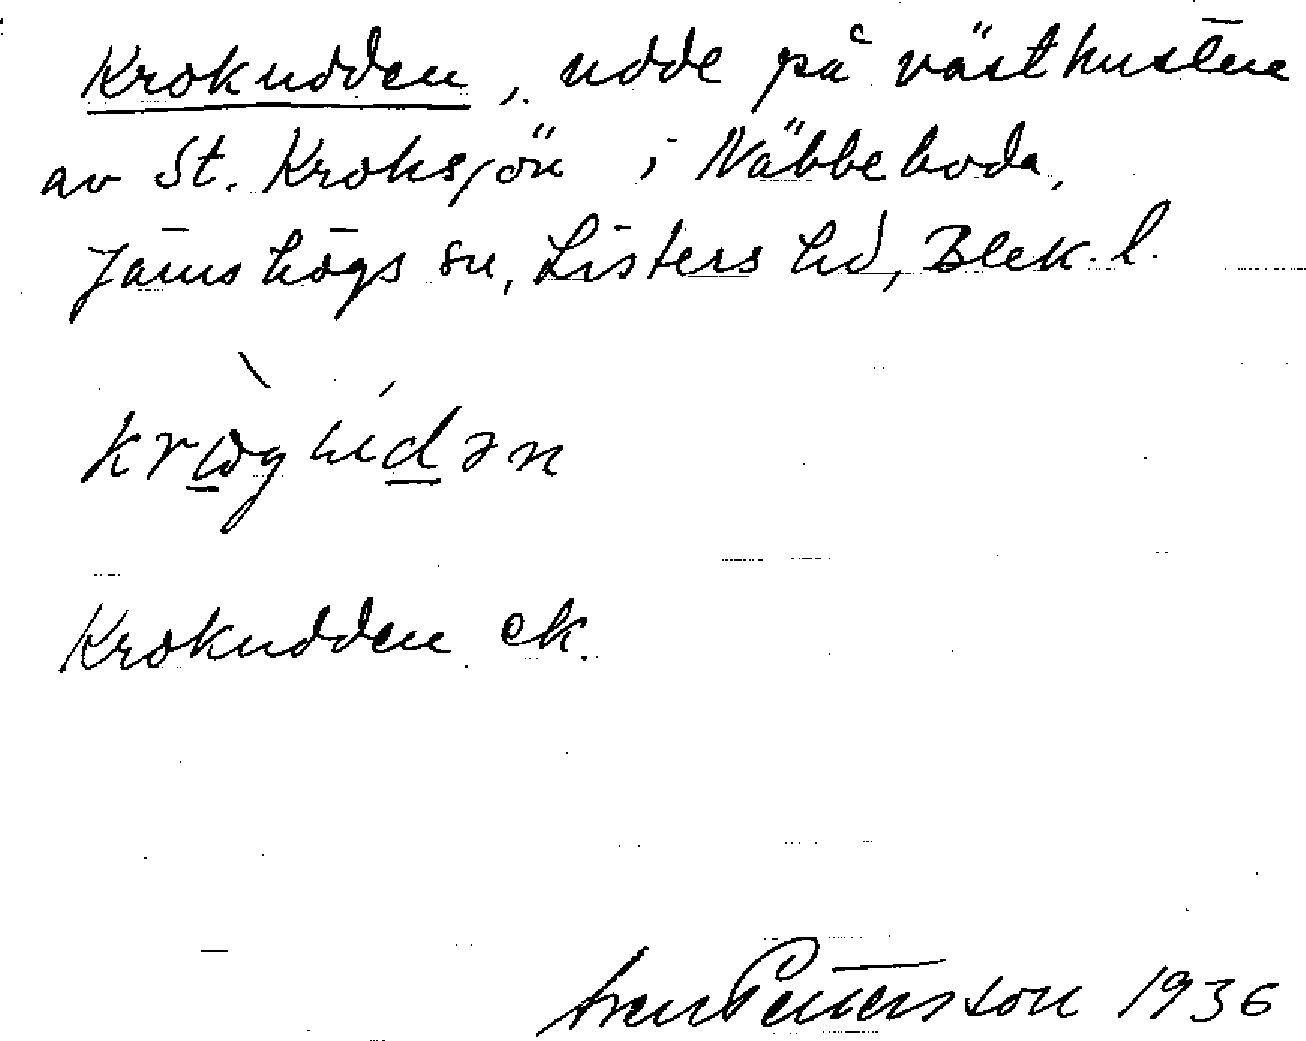 Krokudden, udde på västkusten
av St. Kroksjön i Näbbeboda,
Jämshögs sn, Listers hd, Blek. l.
Krokudden ek.
Sven Pettersson 1936